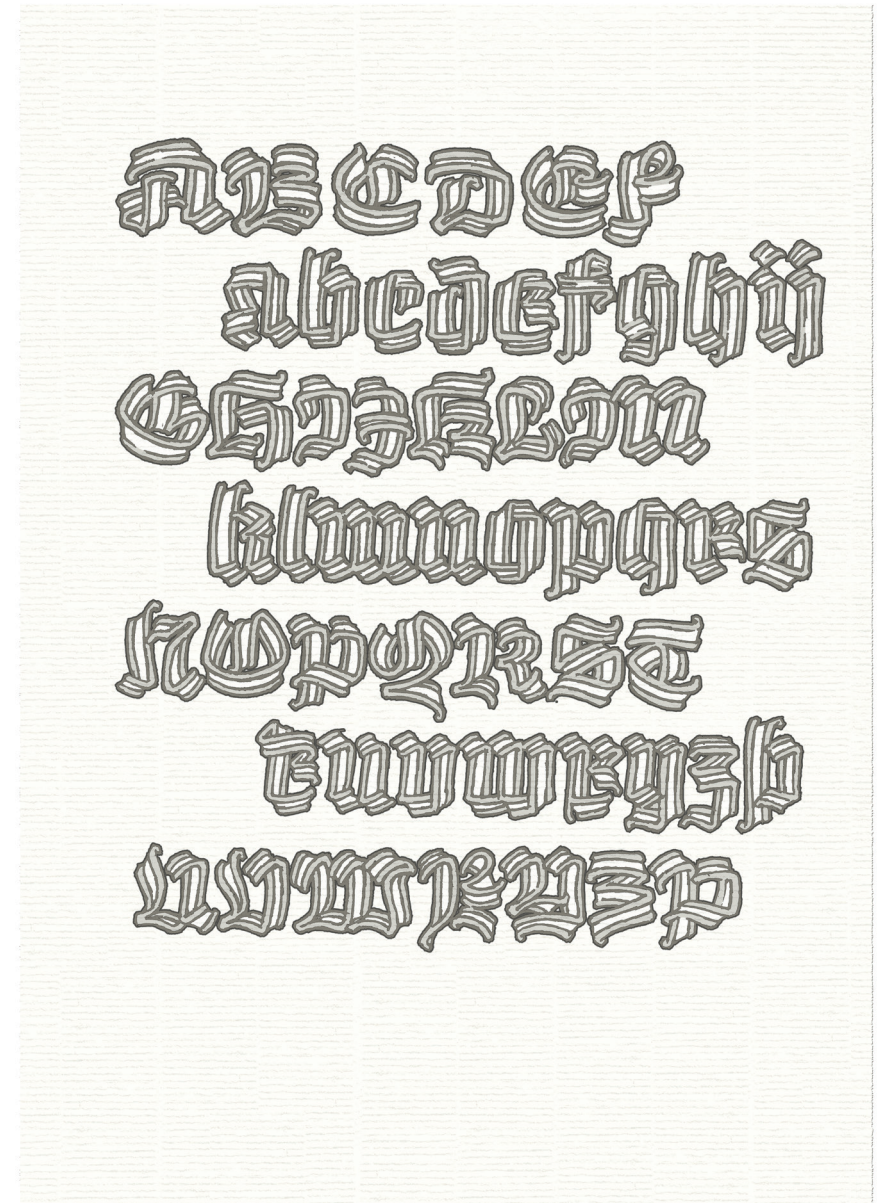 ABCDEF
abcdefghij
GHIJKLM
klmnopqrs
NOPQRST
tuvwxyzþ
UVWXYZÞ